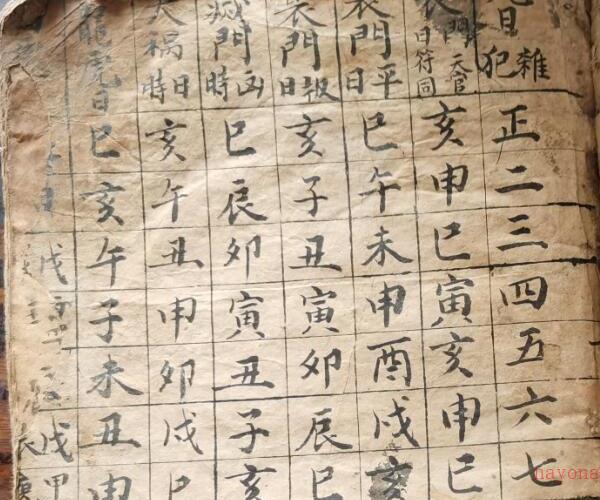 日犯雜正二三四五六七
門天官日符同亥申巳寅亥申巳
喪門平日巳午未申酉戌亥
喪門报日亥子丑寅卯辰巳
滅門凶時巳辰卯寅丑子亥
大禍日時亥午丑申卯戌巳
龍虎日巳亥午子未丑申
戊戊甲
havona